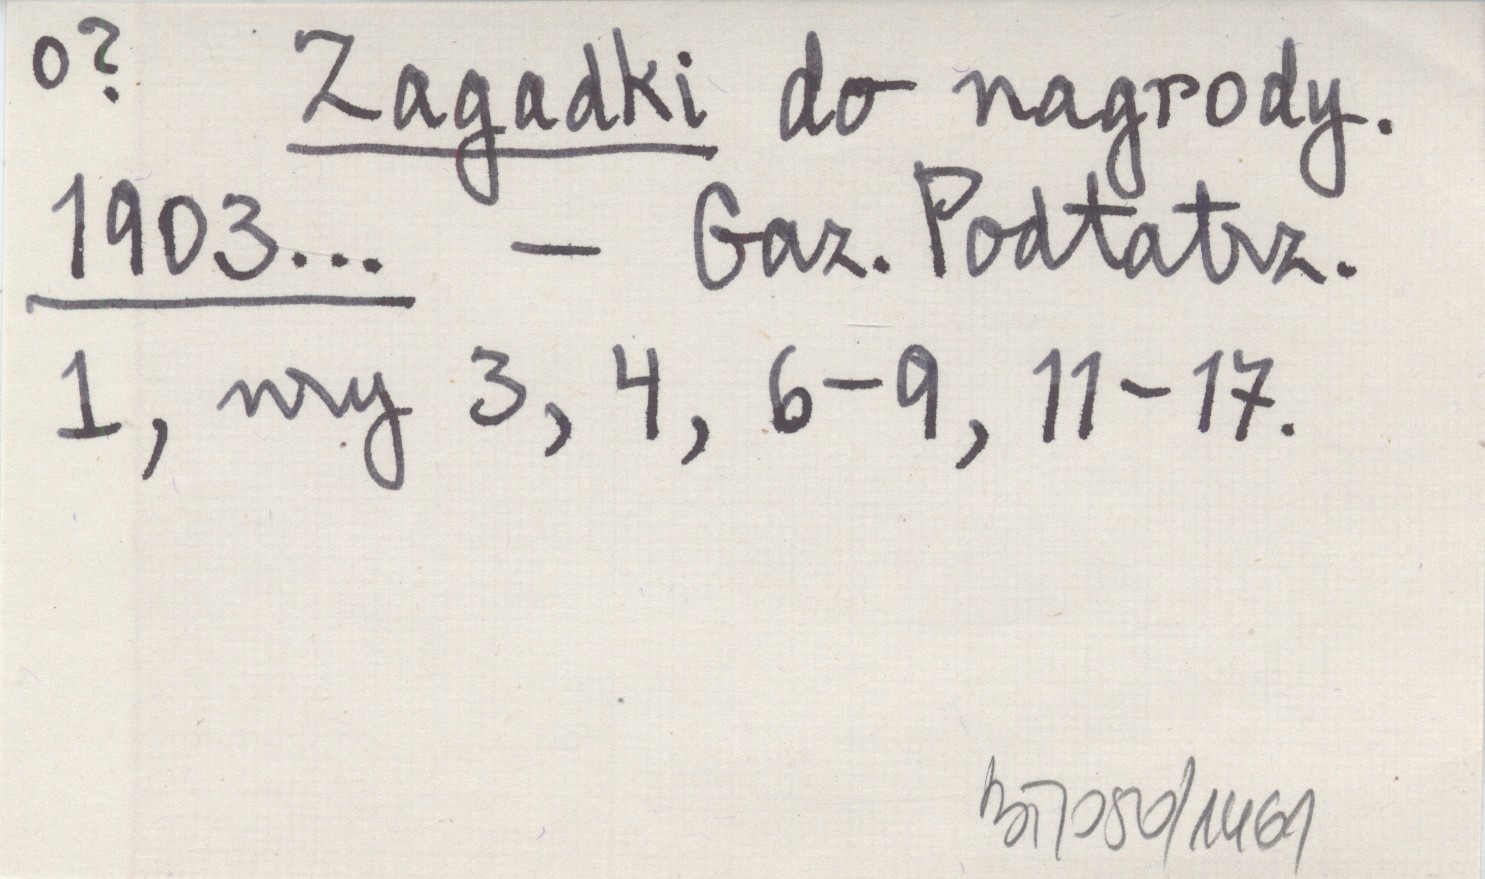 o? Zagadki do nagrody.
1903... – Gaz. Podtatrz.
1, nry 3, 4, 6–9, 11–17.